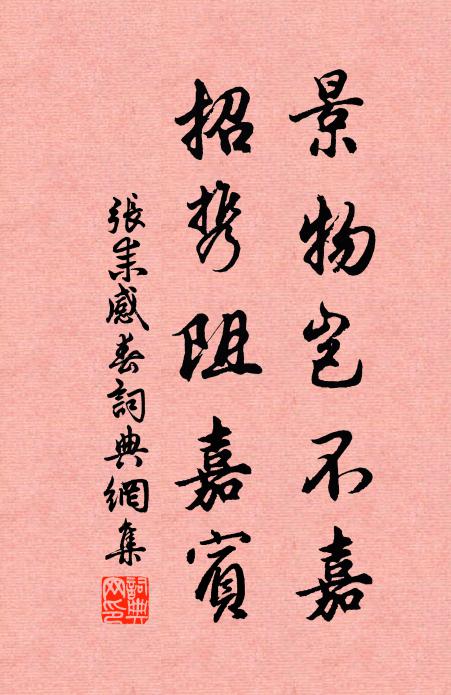 景物岂不嘉
招携阻嘉賓
張耒感春詞典網集
詞典网印